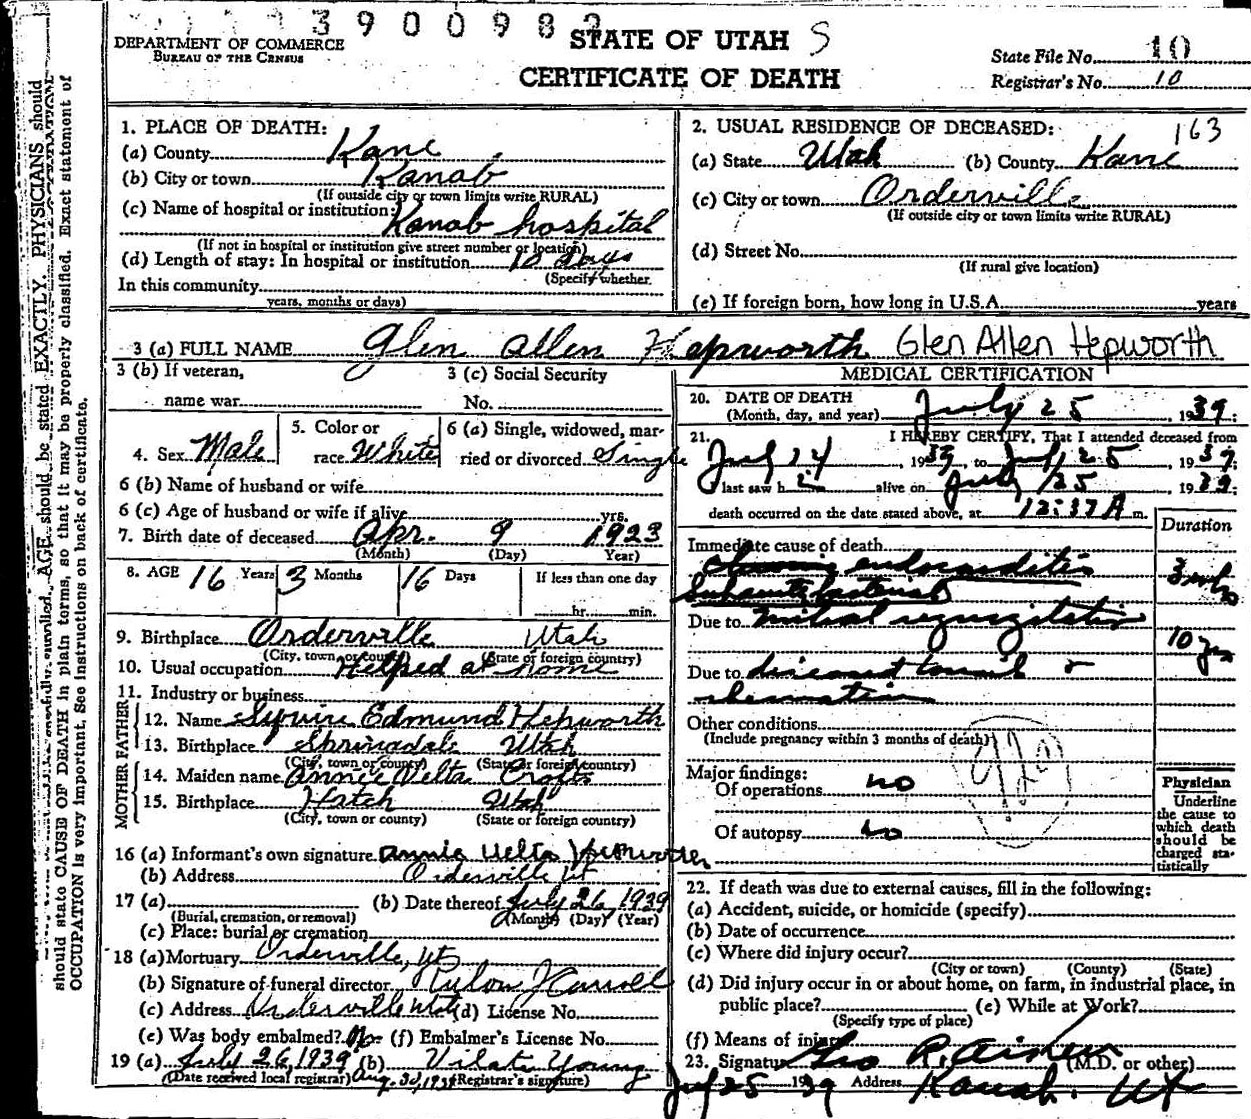 3900982
STATE OF UTAH S
DEPARTMENT OF COMMERCE
BUREAU OF THE CENSUS
CERTIFICATE OF DEATH
State File No. 10
Registrar's No. 10
163
1. PLACE OF DEATH:
(a) County Kane
(b) City or town Kanab
(If outside city or town limits write RURAL)
(c) Name of hospital or institution:
Kanab hospital
(If not in hospital or institution give street number or location)
(d) Length of stay: In hospital or institution 10 days
(Specify whether
In this community
years, months or days)
2. USUAL RESIDENCE OF DECEASED:
(a) State Utah (b) County Kane
(c) City or town Orderville
(If outside city or town limits write RURAL)
(d) Street No.
(If rural give location)
(e) If foreign born, how long in U.S.A. years
3 (a) FULL NAME Glen Allen Hepworth Glen Allen Hepworth
3 (b) If veteran,
name war
3 (c) Social Security
No.
4. Sex Male
5. Color or
race White
6 (a) Single, widowed, mar-
ried or divorced Single
6 (b) Name of husband or wife
6 (c) Age of husband or wife if alive yrs.
7. Birth date of deceased Apr. 9 1923
(Month) (Day) Year)
8. AGE 16 Years 3 Months 16 Days
If less than one day
hr. min.
9. Birthplace Orderville Utah
(City, town, or county) (State of foreign country)
10. Usual occupation Helped at home
11. Industry or business
FATHER
12. Name Squire Edmund Hepworth
13. Birthplace Springdale Utah
(City, town or county) (State or foreign country)
MOTHER
14. Maiden name Annie Velta Crofts
15. Birthplace Hatch Utah
(City, town or county) (State or foreign country)
16 (a) Informant's own signature Annie Velta Hepworth
(b) Address Orderville Ut
17 (a) (b) Date thereof July 26 1939
(Burial, cremation, or removal) (Month) (Day) (Year)
(c) Place: burial or cremation
18 (a) Mortuary Orderville, Ut
(b) Signature of funeral director
(c) Address Orderville Utah (d) License No.
(e) Was body embalmed? No (f) Embalmer's License No.
19 (a) July 26, 1939 (b) Vilate Young
(Date received local registrar) Aug. 30, 1939 Registrar's signature)
MEDICAL CERTIFICATION
20. DATE OF DEATH
(Month, day, and year) July 25, 1939:
21. I HEREBY CERTIFY, That I attended deceased from
July 14, 1939, to July 25, 1939:
last saw h im alive on July 25, 1939:
death occurred on the date stated above, at 12:37 A m.
Duration
Immediate cause of death
endocarditis 3 wks
Subacute bacterial
Due to mitral regurgitation 10 yrs
Due to diseased tonsils &
rheumatism
Other conditions
(Include pregnancy within 3 months of death)
Major findings:
Of operations no
Of autopsy no
Physician
Underline
the cause to
which death
should be
charged sta-
tistically
22. If death was due to external causes, fill in the following:
(a) Accident, suicide, or homicide (specify)
(b) Date of occurrence
(c) Where did injury occur?
(City or town) (County) (State)
(d) Did injury occur in or about home, on farm, in industrial place, in
public place? (e) While at Work?
(Specify type of place)
(f) Means of injury
23. Signature Geo R. Aiken (M.D. or other)
July 25 1939 Address Kanab. Ut
AGE should be stated EXACTLY. PHYSICIANS should
should state CAUSE OF DEATH in plain terms, so that it may be properly classified. Exact statement of
OCCUPATION is very important. See instructions on back of certificate.